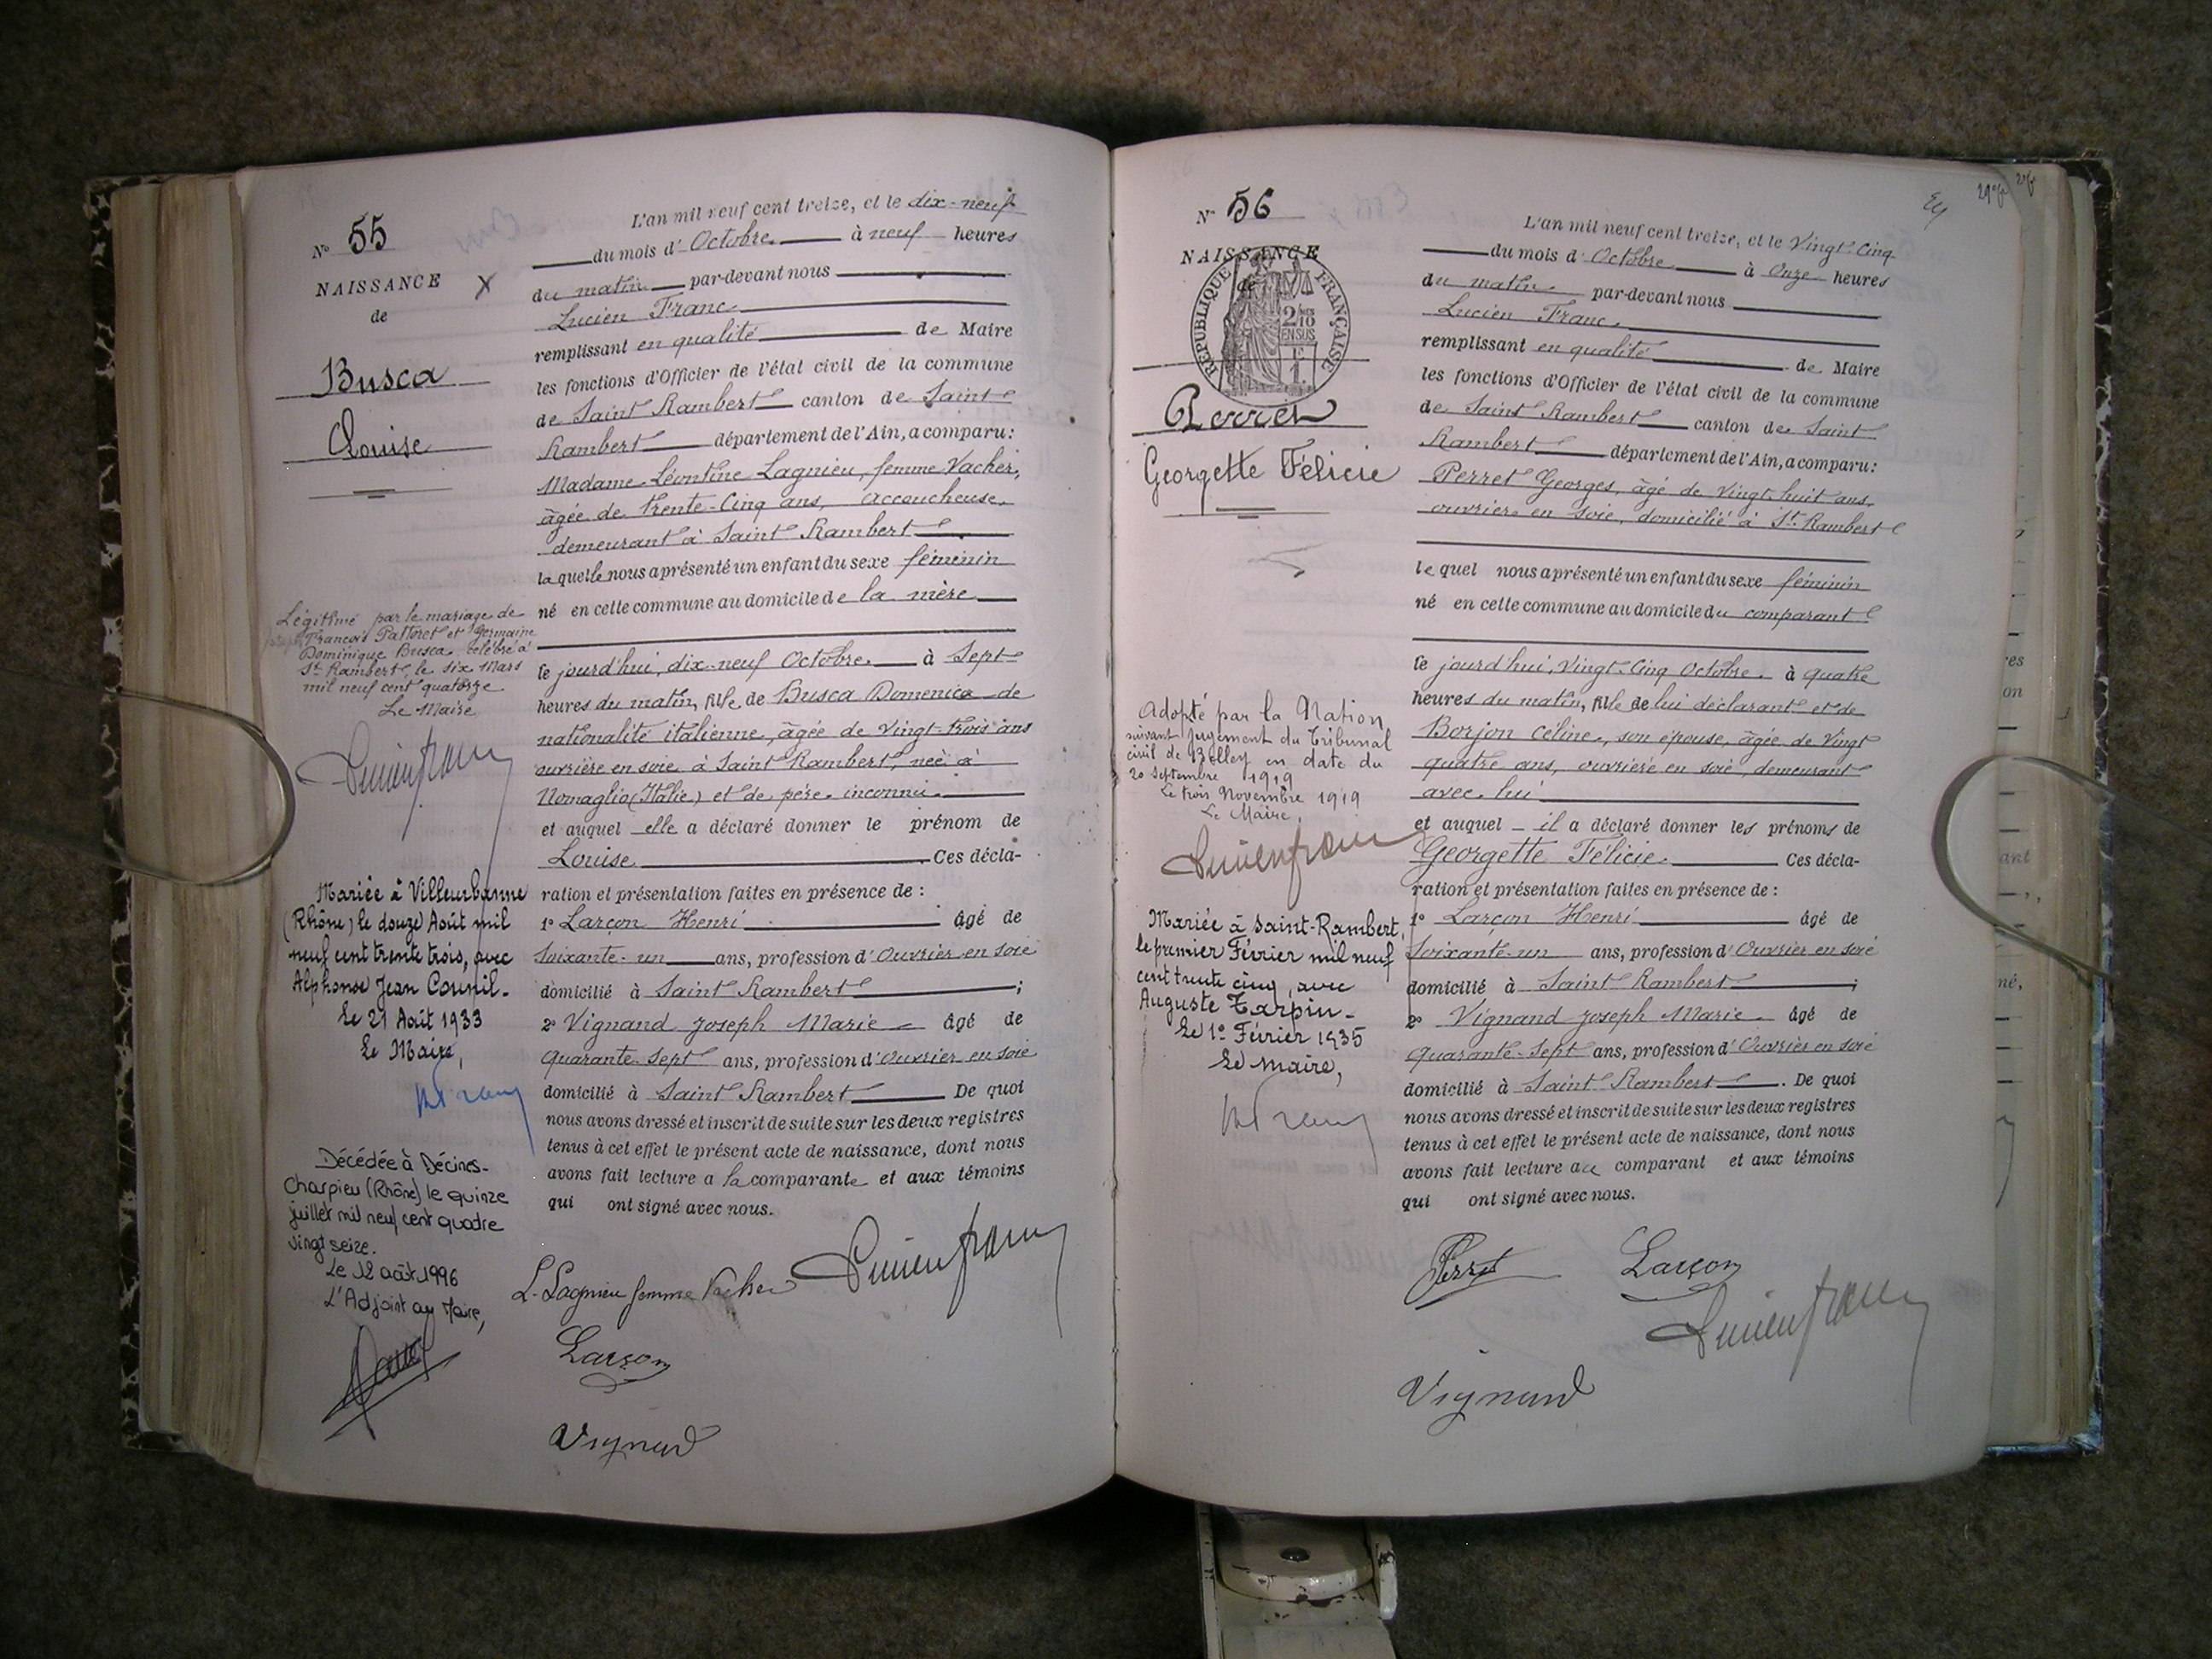 N° 55
NAISSANCE
de
Busca
Louise
Légitimé par le mariage de
François Pattoret et Germaine
Dominique Busca célébré à
St Rambert, le six Mars
mil neuf cent quatorze
Le Maire
Lucien franc
Mariée à Villeurbanne
(Rhône) le douze Août mil
neuf cent trente trois, avec
Alphonse Jean Counil.
Le 21 Août 1933
Le Maire,
Décédée à Décines-
Charpieu (Rhône) le quinze
juillet mil neuf cent quatre
vingt seize.
Le 12 août 1996
L'Adjoint au Maire,
L'an mil neuf cent treize, et le dix-neuf
du mois d'Octobre à neuf heures
du matin par-devant nous
Lucien Franc
remplissant en qualité de Maire
les fonctions d'Officier de l'état civil de la commune
de Saint Rambert canton de Saint
Rambert département de l'Ain, a comparu :
Madame Léontine Lagnieu, femme Vacher,
âgée de trente-Cinq ans, accoucheuse,
demeurant à Saint Rambert
laquelle nous a présenté un enfant du sexe féminin
né en cette commune au domicile de la mère
le jourd'hui, dix-neuf Octobre à Sept
heures du matin, fille de Busca Domenica de
nationalité italienne, âgée de Vingt-trois ans
ouvrière en soie à Saint Rambert, née à
Nomaglio (Italie) et de père inconnu.
et auquel elle a déclaré donner le prénom de
Louise Ces décla-
ration et présentation faites en présence de :
1° Larçon Henri âgé de
Soixante-un ans, profession d'Ouvrier en soie
domicilié à Saint Rambert ;
2° Vignand Joseph Marie âgé de
quarante-Sept ans, profession d'Ouvrier en soie
domicilié à Saint Rambert De quoi
nous avons dressé et inscrit de suite sur les deux registres
tenus à cet effet le présent acte de naissance, dont nous
avons fait lecture a la comparante et aux témoins
qui ont signé avec nous.
L. Lagnieu femme Vacher Lucien franc
Larçon
Vignand
N° 56
NAISSANCE
de
REPUBLIQUE FRANÇAISE
2/10
EN SUS
1 F
Perret
Georgette Félicie
Adopté par la Nation,
suivant jugement du Tribunal
civil de Belley en date du
20 Septembre 1919
Le trois Novembre 1919
Le Maire,
Lucien franc
Mariée à Saint-Rambert,
le premier Février mil neuf
cent trente cinq, avec
Auguste Tarpin.
Le 1er Février 1935
Le Maire,
L'an mil neuf cent treize, et le Vingt-Cinq
du mois d'Octobre à Onze heures
du matin par-devant nous
Lucien Franc
remplissant en qualité de Maire
les fonctions d'Officier de l'état civil de la commune
de Saint Rambert canton de Saint
Rambert département de l'Ain, a comparu :
Perret Georges, âgé de Vingt-huit ans,
ouvrier en soie, domicilié à St-Rambert
lequel nous a présenté un enfant du sexe féminin
né en cette commune au domicile du comparant
le jourd'hui, Vingt-Cinq Octobre à quatre
heures du matin, fille de lui déclarant et de
Borjon Céline, son épouse, âgée de Vingt
quatre ans, ouvrière en soie, demeurant
avec lui
et auquel il a déclaré donner les prénoms de
Georgette Félicie. Ces décla-
ration et présentation faites en présence de :
1° Larçon Henri âgé de
Soixante-un ans, profession d'Ouvrier en soie
domicilié à Saint Rambert ;
2° Vignand Joseph Marie âgé de
quarante-Sept ans, profession d'Ouvrier en soie
domicilié à Saint Rambert. De quoi
nous avons dressé et inscrit de suite sur les deux registres
tenus à cet effet le présent acte de naissance, dont nous
avons fait lecture au comparant et aux témoins
qui ont signé avec nous.
Perret Larçon
Lucien franc
Vignand